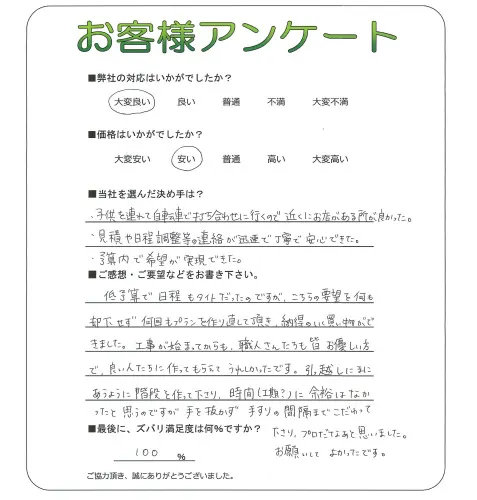 お客様アンケート
■弊社の対応はいかがでしたか？
大変良い 良い 普通 不満 大変不満
■価格はいかがでしたか？
大変安い 安い 普通 高い 大変高い
■当社を選んだ決め手は？
・子供を連れて自転車で打ち合わせに行くので近くにお店がある所が良かった。
・見積や日程調整等の連絡が迅速で丁寧で安心できた。
・予算内で希望が実現できた。
■ご感想・ご要望などをお書き下さい。
低予算で日程もタイトだったのですが、こちらの要望を何も
却下せず何回もプランを作り直して頂き、納得のいく買い物がで
きました。工事が始まってからも、職人さんたちも皆お優しい方
で、良い人たちに作ってもらえてうれしかったです。引越しにまに
あうように階段を作って下さり、時間(工期?)に余裕はなか
ったと思うのですが手を抜かず手すりの間隔までこだわって
下さり、プロだなぁと思いました。
お願いして よかったです。
■最後に、ズバリ満足度は何%ですか？
100 %
ご協力頂き、誠にありがとうございました。